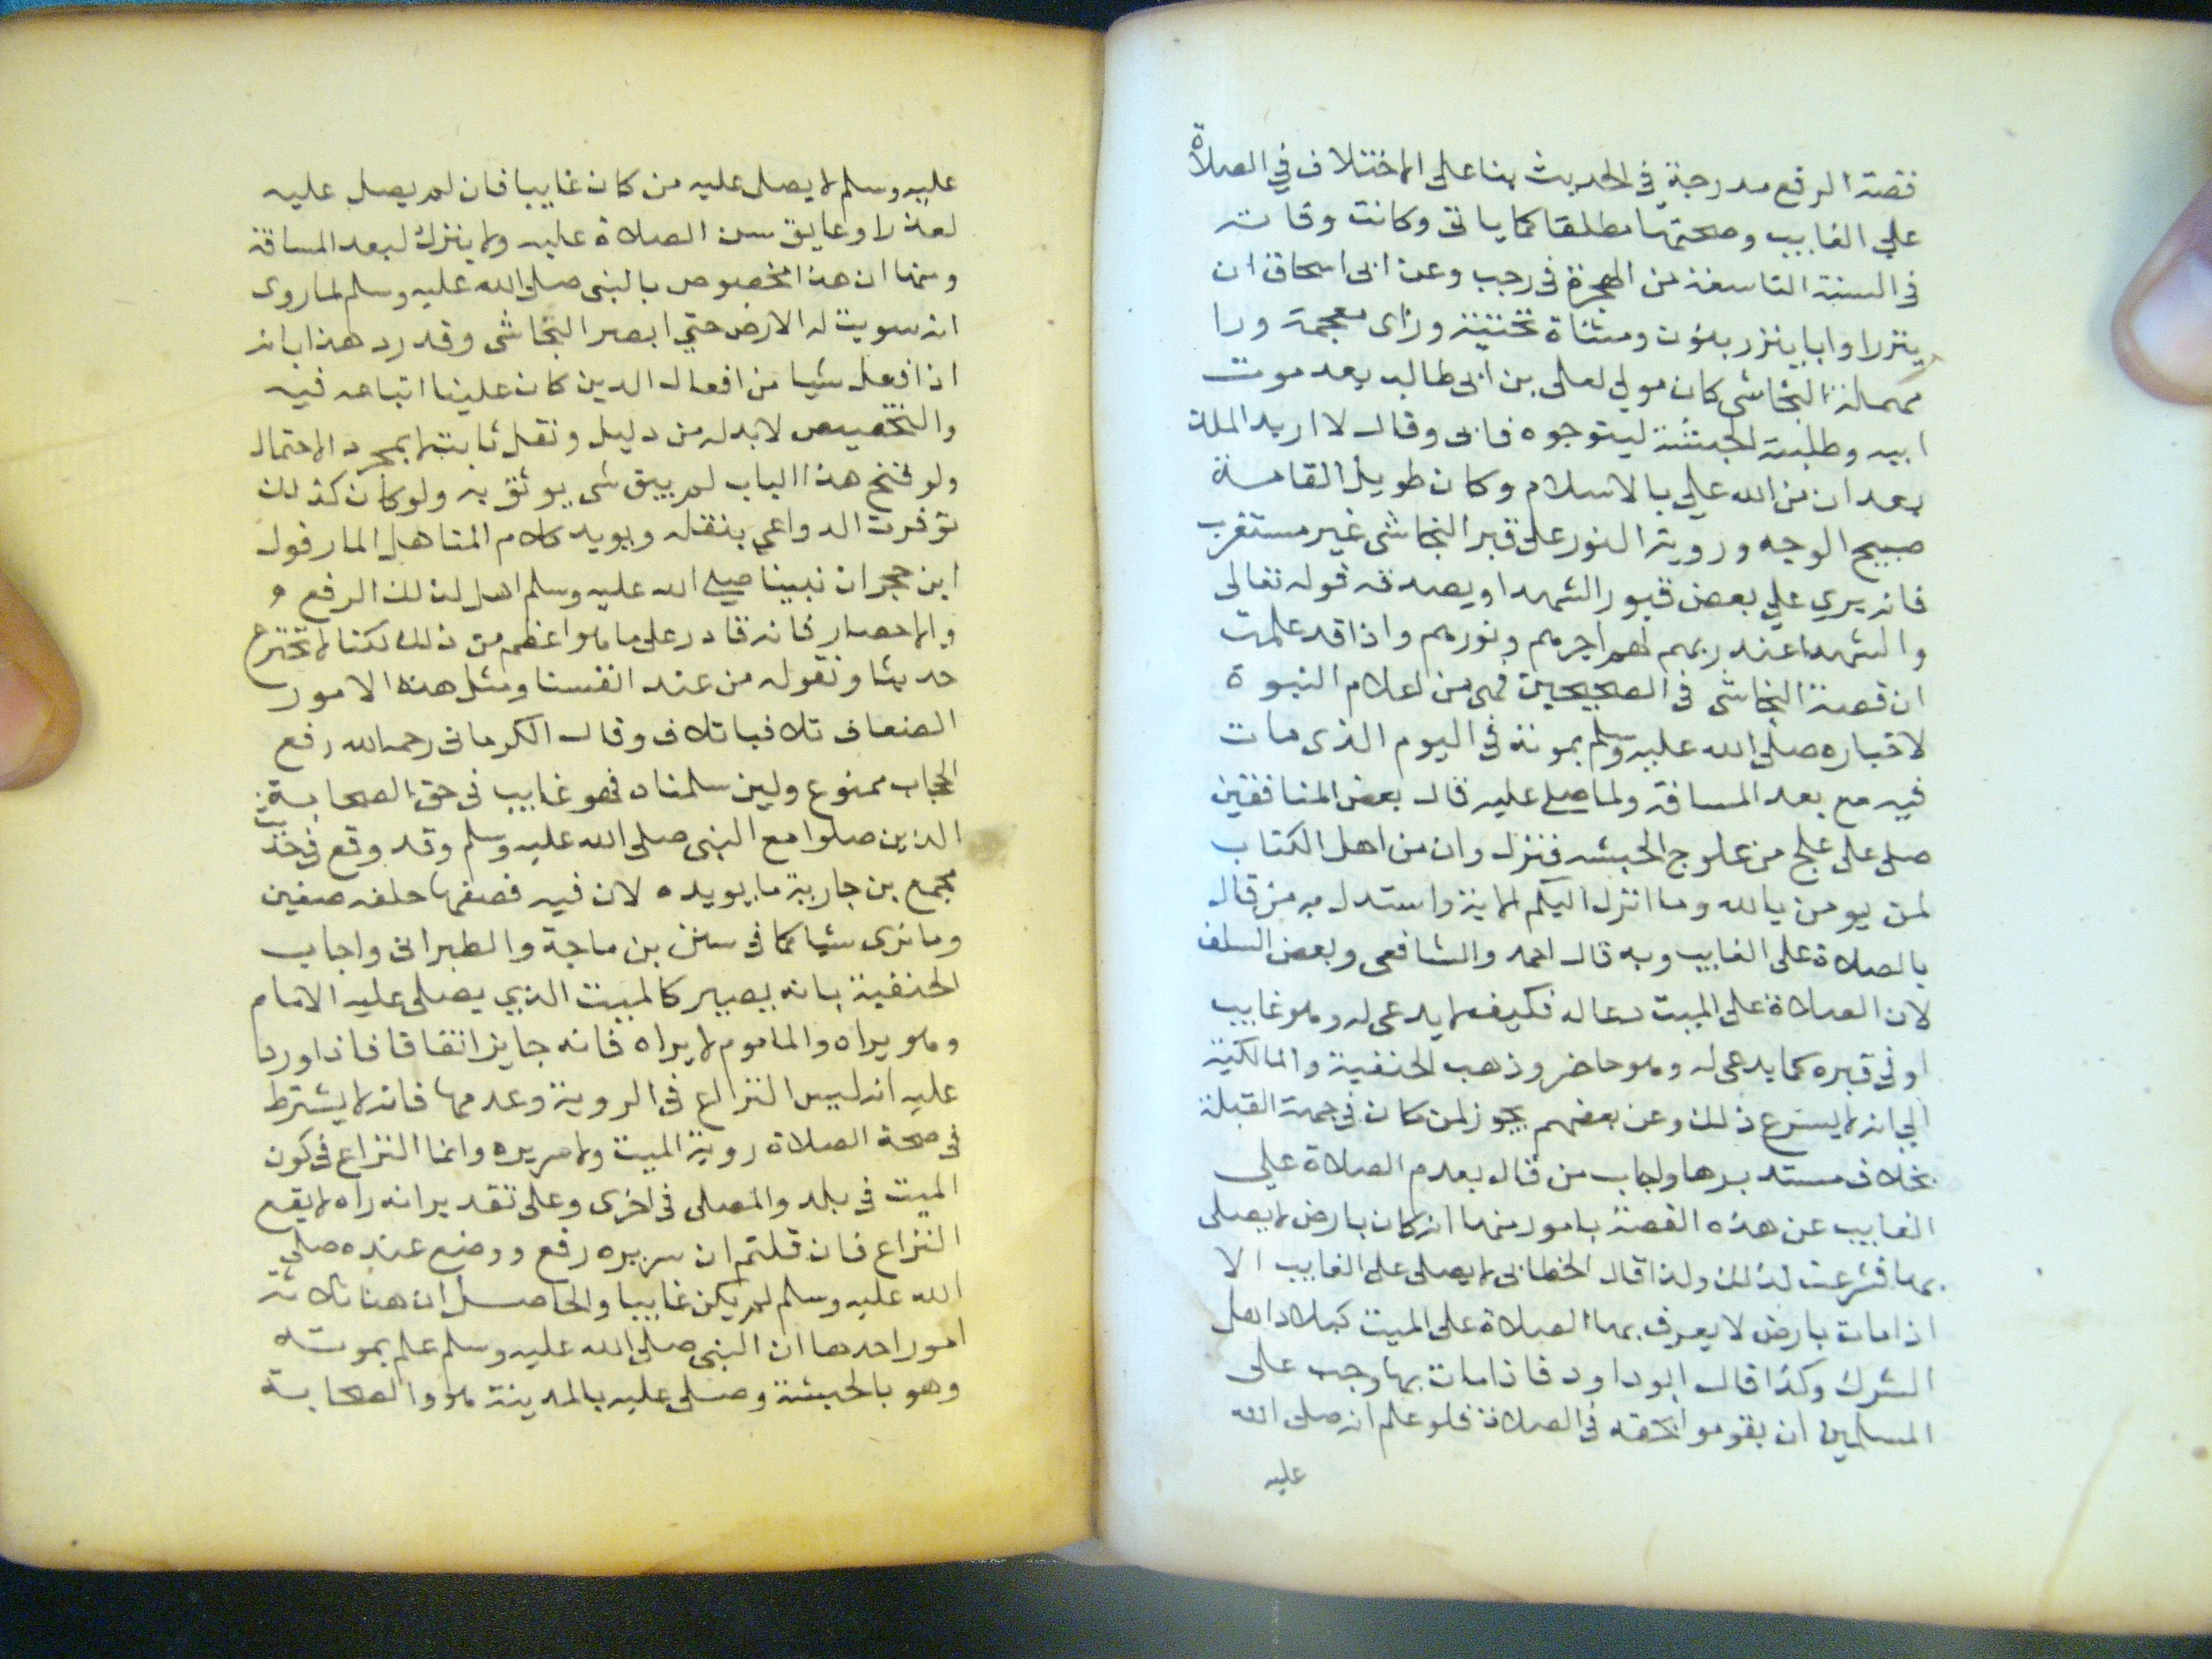 قصة الرفع مدرجة في الحديث بنا على الاختلاف في الصلاة
علي الغايب وصحتها مطلقا كما ياتي وكانت وفاته
في السنة التاسعة من الهجرة في رجب وعن ابي اسحاق ان
ينزرا وابا ينزر بنون ومثناة تحتية وزاى معجمة ورا
مهملة النجاشى كان مولي لعلى بن ابى طالب بعد موت
ابيه وطلبته الحبشة ليتوجوه فابى وقال لا اريد الملك
بعد ان من الله علي بالاسلام وكان طويل القامة
صبيح الوجه وروية النور على قبر النجاشى غير مستغرب
فانه يري علي بعض قبور الشهدا ويصدقه قوله تعالى
والشهدا عند ربهم لهم اجرهم ونورهم واذا قد علمت
ان قصة النجاشى في الصحيحين فهى من اعلام النبوة
لاخباره صلى الله عليه وسلم بموته في اليوم الذى مات
فيه مع بعد المسافة ولما صلى عليه قال بعض المنافقين
صلى على علج من علوج الحبشه فنزل وان من اهل الكتاب
لمن يومن بالله وما انزل اليكم الاية واستدل به من قال
بالصلاة على الغايب وبه قال احمد والشافعى وبعض السلف
لان الصلاة على الميت دعا له فكيف لا يدعى له وهو غايب
او في قبره كما يدعى له وهو حاضر وذهب الحنفية والمالكية
الي انه لا يشرع ذلك وعن بعضهم يجوز لمن كان في جهة القبلة
بخلاف مستدبرها واجاب من قال بعدم الصلاة علي
الغايب عن هذه القصة بامور منها انه كان بارض لا يصلى
بها فشرعت لذلك ولذا قال الخطابى لا يصلى على الغايب الا
اذا مات بارض لا يعرف بها الصلاة على الميت كبلاد اهل
الشرك وكذا قال ابو داود فاذا مات بها وجب على
المسلمين ان يقوموا بحقه في الصلاة فلو علم انه صلى الله
عليه
عليه وسلم لا يصلى عليه من كان غايبا فان لم يصل عليه
لعذر او عايق سن الصلاة عليه ولا يترك لبعد المسافة
ومنها ان هذا مخصوص بالنبى صلى الله عليه وسلم لما روى
انه سويت له الارض حتي ابصر النجاشى وقد رد هذا بانه
اذا فعل شيا من افعال الدين كان علينا اتباعه فيه
والتخصيص لا بد له من دليل ونقل ثابت لا بمجرد الاحتمال
ولو فتح هذا الباب لم يبق شى يوثق به ولو كان كذلك
توفرت الدواعي بنقله ويويد كلام المتاهل المار قول
ابن حجر ان نبينا صلى الله عليه وسلم اهل لذلك الرفع و
والاحصار فانه قادر على ما هو اعظم من ذلك لكنا لا نخترع
حديثا ونقوله من عند انفسنا ومثل هذه الامور
الضعاف تلاف باتلاف وقال الكرمانى رحمه الله رفع
الحجاب ممنوع ولين سلمناه فهو غايب في حق الصحابة
الذين صلوا مع النبى صلى الله عليه وسلم وقد وقع في
مجمع بن جارية ما يويده لان فيه فصفها خلفه صفين
وما نرى شيا كما في سنن بن ماجة والطبرانى واجاب
الحنفية بانه يصير كالميت الذي يصلى عليه الامام
وهو يراه والماموم لا يراه فانه جايز اتفاقا فاذا ورد
عليه انه ليس النزاع في الروية وعدمها فانه لا يشترط
في صحة الصلاة روية الميت ولا سريره وانما النزاع في كون
الميت في بلد والمصلى في اخرى وعلى تقدير انه راه لا يقع
النزاع فان قلتم ان سريره رفع ووضع عنده صلى
الله عليه وسلم لم يكن غايبا والحاصل ان هنا ثلاثة
امور احدها ان النبى صلى الله عليه وسلم علم بموته
وهو بالحبشة وصلى عليه بالمدينة هو والصحابة